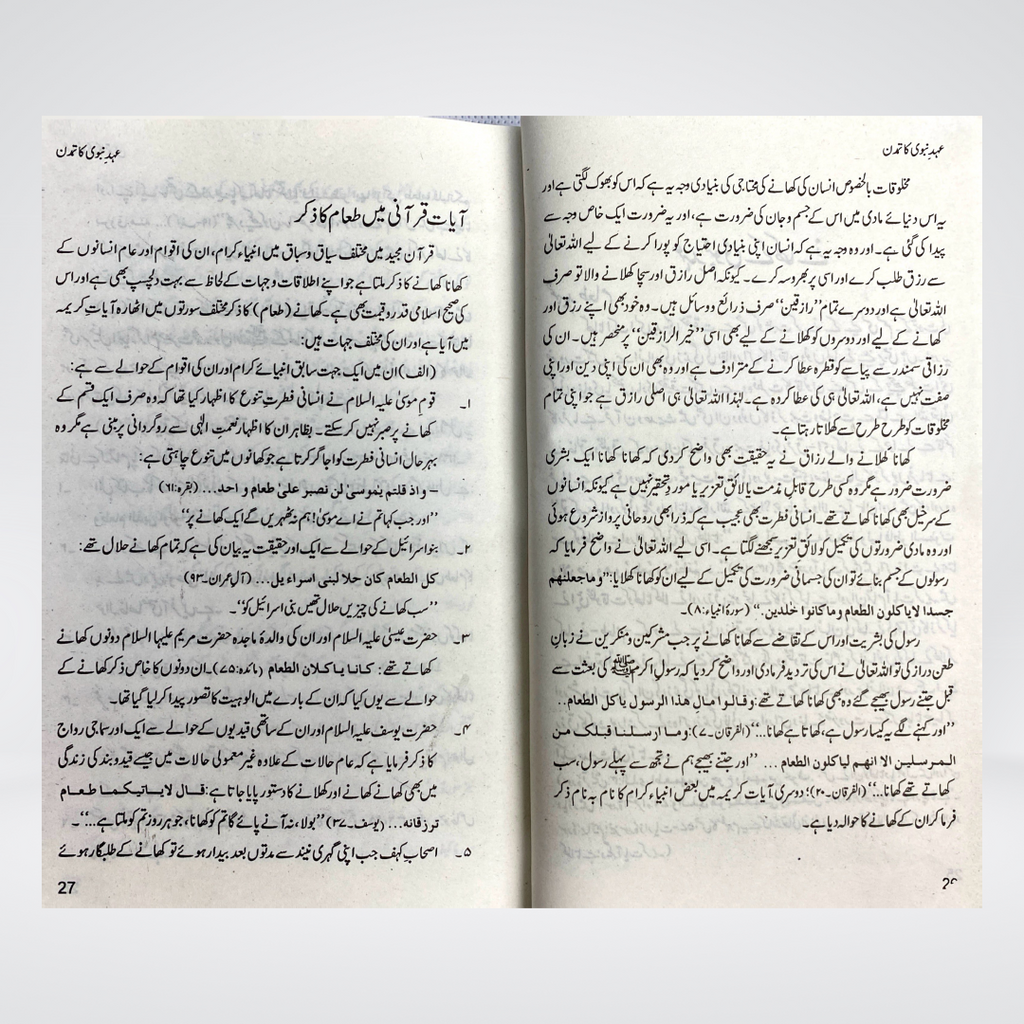 عہدِ نبوی کا تمدن
مخلوقات بالخصوص انسان کی کھانے کی محتاجی کی بنیادی وجہ یہ ہے کہ اس کو بھوک لگتی ہے اور
یہ اس دنیائے مادی میں اس کے جسم و جان کی ضرورت ہے، اور یہ ضرورت ایک خاص وجہ سے
پیدا کی گئی ہے۔ اور وہ وجہ یہ ہے کہ انسان اپنی بنیادی احتیاج کو پورا کرنے کے لیے اللہ تعالیٰ
سے رزق طلب کرے اور اسی پر بھروسہ کرے۔ کیونکہ اصل رازق اور سچا کھلانے والا تو صرف
اللہ تعالیٰ ہے اور دوسرے تمام ”رازقین“ صرف ذرائع و وسائل ہیں۔ وہ خود بھی اپنے رزق اور
کھانے کے لیے اور دوسروں کو کھلانے کے لیے بھی اسی ”خیر الرازقین“ پر منحصر ہیں۔ ان کی
رزاقی سمندر سے پیاسے کو قطرہ عطا کرنے کے مترادف ہے اور وہ بھی ان کی اپنی دین اور اپنی
صفت نہیں ہے، اللہ تعالیٰ ہی کی عطا کردہ ہے۔ لہٰذا اللہ تعالیٰ ہی اصلی رازق ہے جو اپنی تمام
مخلوقات کو طرح طرح سے کھلاتا رہتا ہے۔
کھانا کھلانے والے رزاق نے یہ حقیقت بھی واضح کردی کہ کھانا کھانا ایک بشری
ضرورت ضرور ہے مگر وہ کسی طرح قابلِ مذمت یا لائقِ تعزیر یا موردِ تحقیر نہیں ہے کیونکہ انسانوں
کے سرخیل بھی کھانا کھاتے تھے۔ انسانی فطرت بھی عجیب ہے کہ ذرا بھی روحانی پرواز شروع ہوئی
اور وہ مادی ضرورتوں کی تکمیل کو لائقِ تعزیر سمجھنے لگتا ہے۔ اسی لیے اللہ تعالیٰ نے واضح فرمایا کہ
رسولوں کے جسم بنائے تو ان کی جسمانی ضرورت کی تکمیل کے لیے ان کو کھانا کھلایا: ”وما جعلنٰهم
جسدا لایاکلون الطعام وماکانوا خلدین۔“ (سورۂ انبیاء:۸)۔
رسول کی بشریت اور اس کے تقاضے سے کھانا کھانے پر جب مشرکین و منکرین نے زبانِ
طعن دراز کی تو اللہ تعالیٰ نے اس کی تردید فرمادی اور واضح کردیا کہ رسولِ اکرم ﷺ کی بعثت سے
قبل جتنے رسول بھیجے گئے وہ بھی کھانا کھاتے تھے: وقالوا مالِ هذا الرسول یاکل الطعام..
”اور کہنے لگے یہ کیسا رسول ہے، کھاتا ہے کھانا...“ (الفرقان۔۷): وما ارسلنا قبلک من
المرسلین الا انهم لیاکلون الطعام ... ”اور جتنے بھیجے ہم نے تجھ سے پہلے رسول، سب
کھاتے تھے کھانا...“ (الفرقان۔۲۰)؛ دوسری آیات کریمہ میں بعض انبیاء کرام کا نام بہ نام ذکر
فرما کر ان کے کھانے کا حوالہ دیا ہے۔
عہدِ نبوی کا تمدن
آیات قرآنی میں طعام کا ذکر
قرآن مجید میں مختلف سیاق و سباق میں انبیاء کرام، ان کی اقوام اور عام انسانوں کے
کھانا کھانے کا ذکر ملتا ہے جو اپنے اطلاقات و جہات کے لحاظ سے بہت دلچسپ بھی ہے اور اس
کی صحیح اسلامی قدر و قیمت بھی ہے۔ کھانے (طعام) کا ذکر مختلف سورتوں میں اٹھارہ آیاتِ کریمہ
میں آیا ہے اور ان کی مختلف جہات ہیں:
(الف) ان میں ایک جہت سابق انبیائے کرام اور ان کی اقوام کے حوالے سے ہے:
۱۔ قومِ موسیٰ علیہ السلام نے انسانی فطرتِ تنوع کا اظہار کیا تھا کہ وہ صرف ایک قسم کے
کھانے پر صبر نہیں کرسکتے۔ بظاہر ان کا اظہار نعمتِ الٰہی سے روگردانی پر مبنی ہے مگر وہ
بہر حال انسانی فطرت کو اجاگر کرتا ہے جو کھانوں میں تنوع چاہتی ہے:
– واذ قلتم یٰموسیٰ لن نصبر علیٰ طعام و احد... (بقرہ:۶۱)
”اور جب کہا تم نے اے موسیٰ! ہم نہ ٹھہریں گے ایک کھانے پر“
۲۔ بنو اسرائیل کے حوالے سے ایک اور حقیقت یہ بیان کی ہے کہ تمام کھانے حلال تھے:
کل الطعام کان حلا لبنی اسراءیل... (آل عمران۔۹۳)
”سب کھانے کی چیزیں حلال تھیں بنی اسرائیل کو“۔
۳۔ حضرت عیسیٰ علیہ السلام اور ان کی والدۂ ماجدہ حضرت مریم علیہا السلام دونوں کھانے
کھاتے تھے: کانا یاکلان الطعام (مائدہ:۷۵)۔ ان دونوں کا خاص ذکر کھانے کے
حوالے سے یوں کیا کہ ان کے بارے میں الوہیت کا تصور پیدا کرلیا گیا تھا۔
۴۔ حضرت یوسف علیہ السلام اور ان کے ساتھی قیدیوں کے حوالے سے ایک اور سماجی رواج
کا ذکر فرمایا ہے کہ عام حالات کے علاوہ غیر معمولی حالات میں جیسے قید و بند کی زندگی
میں بھی کھانے کھانے اور کھلانے کا دستور پایا جاتا ہے: قال لایاتیکما طعام
ترزقانه... (یوسف۔۳۷) ”بولا، نہ آنے پائے گا تم کو کھانا، جو ہر روز تم کو ملتا ہے...“۔
۵۔ اصحابِ کہف جب اپنی گہری نیند سے مدتوں بعد بیدار ہوئے تو کھانے کے طلبگار ہوئے
27